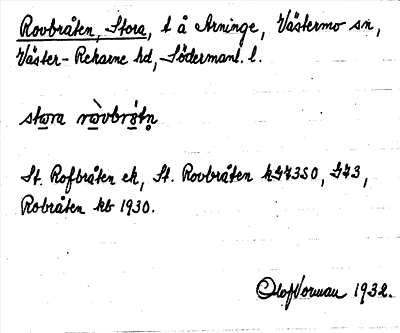 Rovbråten, Stora, t å Arninge, Västermo sn,
Väster-Rekarne hd, Södermanl. l.
stωra ròvbrǻtn̥
St. Rofbråten ek, St. Rovbråten
Robråten kb 1930.
Olof Vorman 1932.